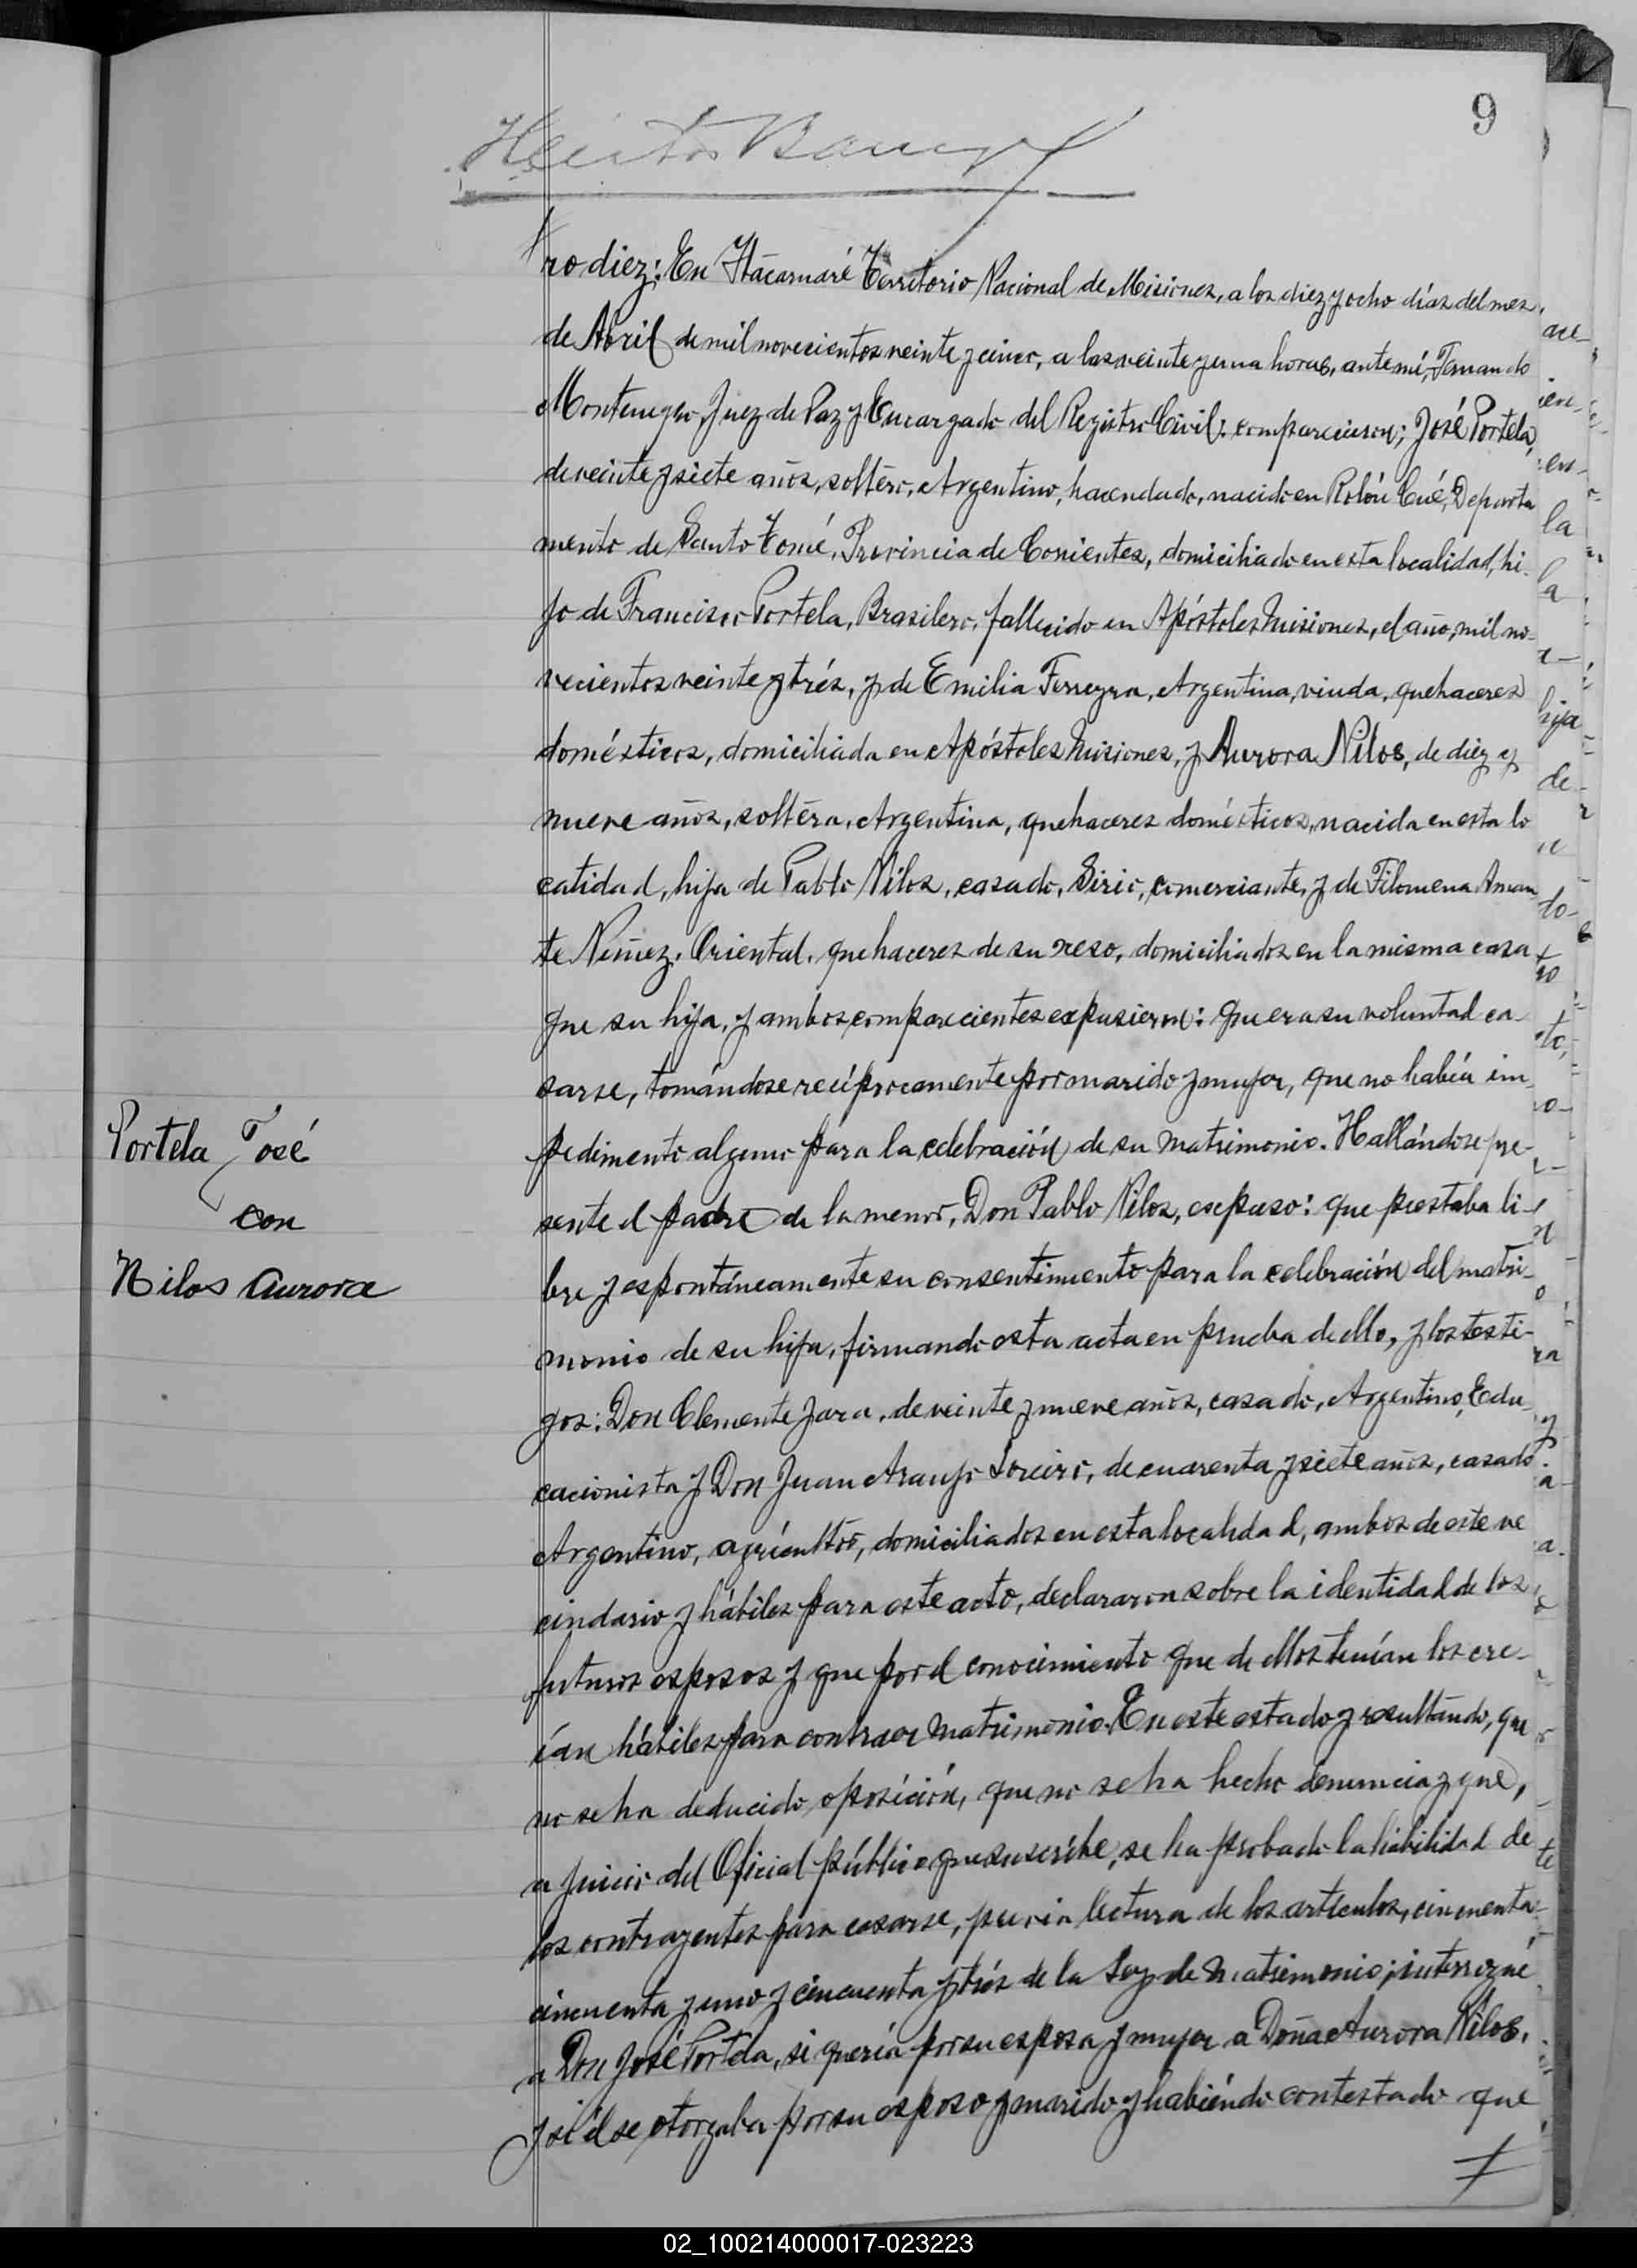 9
ro diez: En Itacaruaré Territorio Nacional de Misiones, a los diez y ocho días del mes
de Abril de mil novecientos veinte y cinco, a las veinte y una horas, ante mí, Fernando
Montenegro, Juez de Paz y Encargado del Registro Civil: comparecieron; José Portela,
de veinte y siete años, soltero, Argentino, hacendado, nacido en Rolón Cué, Departa
mento de Santo Tomé, Provincia de Corrientes, domiciliado en esta localidad, hi-
jo de Francisco Portela, Brasilero, fallecido en Apóstoles Misiones, el año, mil no-
vecientos veinte y trés, y de Emilia Ferreyra, Argentina, viuda, quehaceres
domésticos, domiciliada en Apóstoles Misiones, y Aurora Nilos, de diez y
nueve años, soltera, Argentina, quehaceres domésticos, nacida en esta lo
calidad, hija de Pablo Nilos, casado, Sirio, comerciante, y de Filomena Aman
te Nuñez, Oriental, quehaceres de su sexo, domiciliados en la misma casa
que su hija, y ambos comparecientes expusieron: que era su voluntad ca-
sarse, tomándose recíprocamente por marido y mujer, que no había im-
pedimento alguno pára la celebración de su matrimonio. Hallándose pre-
sente el padre de la menor, Don Pablo Nilos, expuso: que prestaba li-
bre y espontáneamente su consentimiento para la celebración del matri-
monio de su hija, firmando esta acta en prueba de ello, y los testi-
gos: Don Clemente Jara, de veinte y nueve años, casado, Argentino, Edu-
cacionista y Don Juan Araujo Loreiro, de cuarenta y siete años, casado
Argentino, agrícultor, domiciliados en esta localidad, ambos de este ve
cindario y hábiles para este acto, declararon sobre la identidad de los
futuros esposos y que por el conocimiento que de ellos tenían los cre-
ían hábiles para contraer matrimonio. En este estado y resultando, que
no se ha deducido oposición, que no se ha hecho denuncia y que,
a juicio del Oficial público que suscribe, se ha probado la habilidad de
los contrayentes para casarse, previa lectura de los artículos, cincuenta
cincuenta y uno y cincuenta y trés de la Ley de Matrimonio; interrogué
a Don José Portela, si quería por su esposa y mujer a Doña Aurora Nilos,
y si él se otorgaba por su esposo y marido y habiéndo contestado que
Portela José
con
Nilos Aurora
02_100214000017-023223